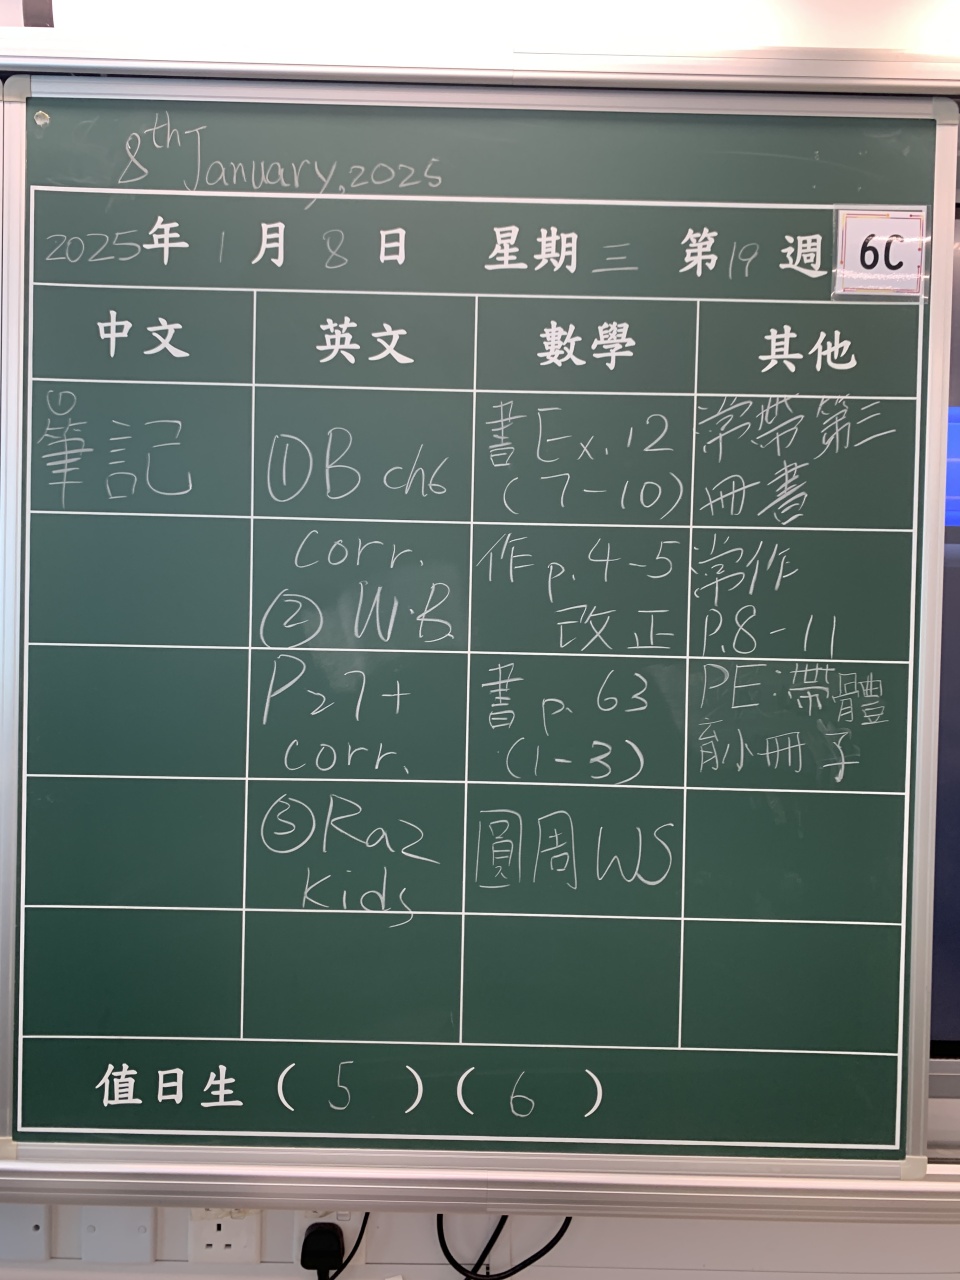 8th January, 2025
2025年 1 月 8 日 星期 三 第 19 週 6C
中文 英文 數學 其他
①
筆記
①B ch6
corr.
② W.B.
P27+
corr.
③ Raz
Kids
書 Ex. 12
(7-10)
作 p. 4-5
改正
書 p. 63
(1-3)
圓周 WS
常帶第三
冊書
常作
P.8-11
PE:帶體
育小冊子
值日生 ( 5 ) ( 6 )